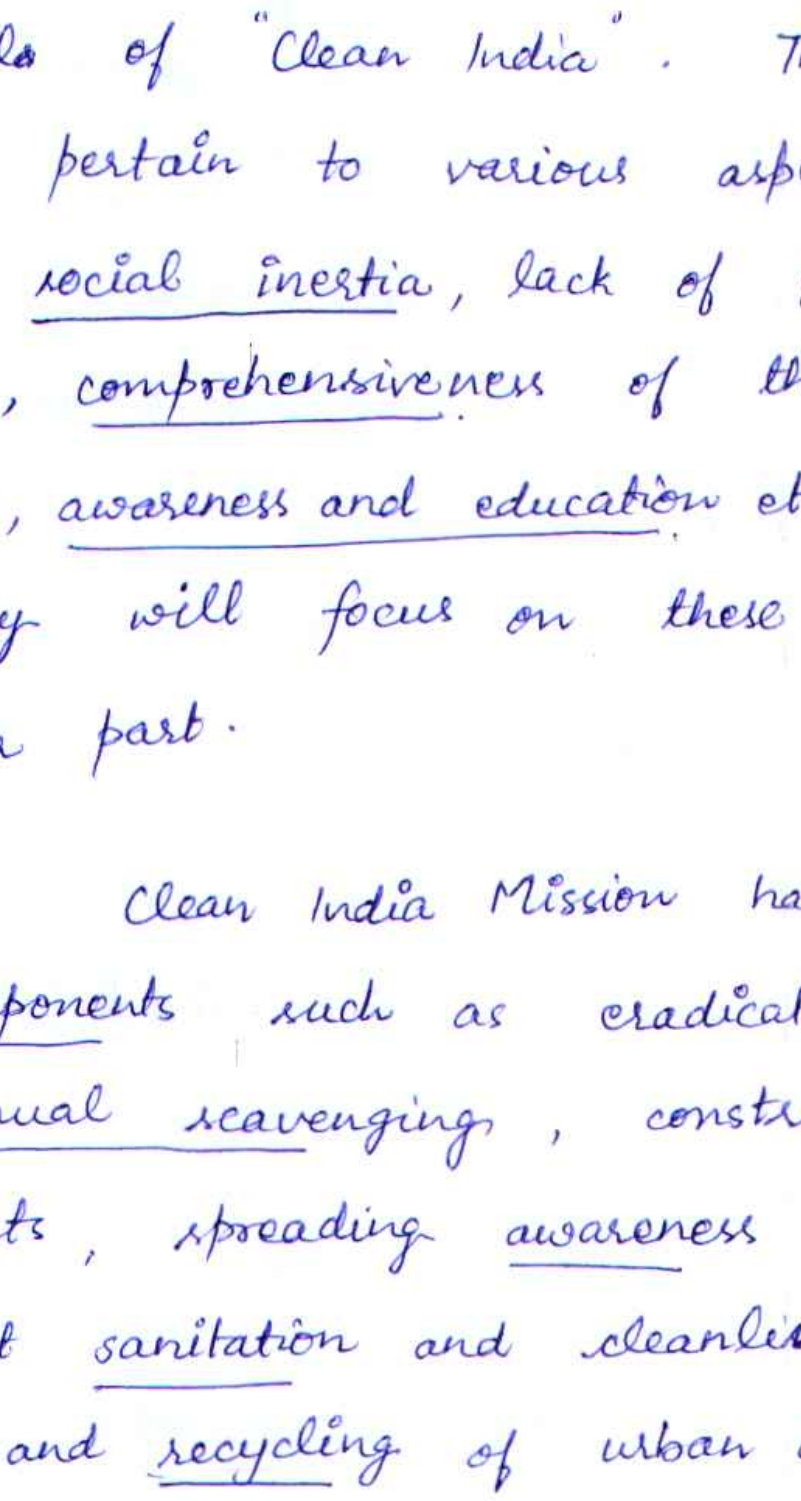 of "Clean India". T
pertain to various asp
social inertia, lack of
, comprehensiveness of th
, awareness and education et
y will focus on these
part.
Clean India Mission ha
ponents such as eradicat
ual scavenging, constr
ts, spreading awareness
t sanitation and cleanlin
and recycling of urban